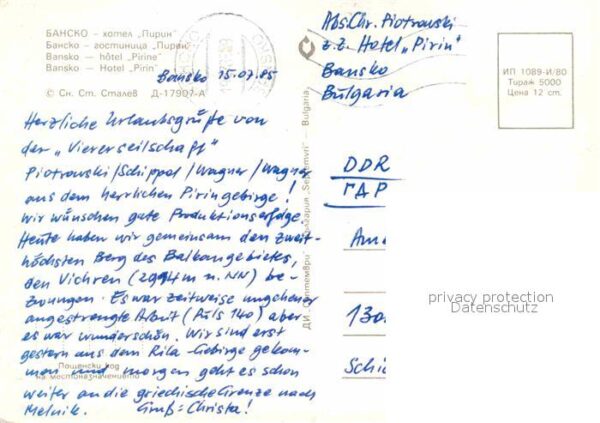 БАНСКО – хотел „Пирин“
Банско – гостиница „Пирин“
Bansko – hôtel „Pirine“
Bansko – Hotel „Pirin“
Bansko 15.07.85
© Сн. Ст. Сталев Д-17907-А
Herzliche Urlaubsgrüße von
der „Viererseilschaft“
Piotrowski/Schippol/Wagner/Wagner
aus dem herrlichen Piringebirge!
Wir wünschen gute Produktionserfolge.
Heute haben wir gemeinsam den zweit-
höchsten Berg des Balkangebietes,
den Vichren (2914m ü. NN) be-
zwungen. Es war zeitweise ungeheuer
angestrengte Arbeit (Puls 140) aber
es war wunderschön. Wir sind erst
gestern aus dem Rila-Gebirge gekom-
men und morgen geht es schon
weiter an die griechische Grenze nach
Melnik. Gruß: Christa!
Пощенски код
на местоназначението
Bulgaria,
Септември
Abs. Chr. Piotrowski
z.Z. Hotel „Pirin“
Bansko
Bulgaria
ИП 1089-И/80
Тираж 5000
Цена 12 ст.
DDR
ГДР
130
privacy protection
Datenschutz